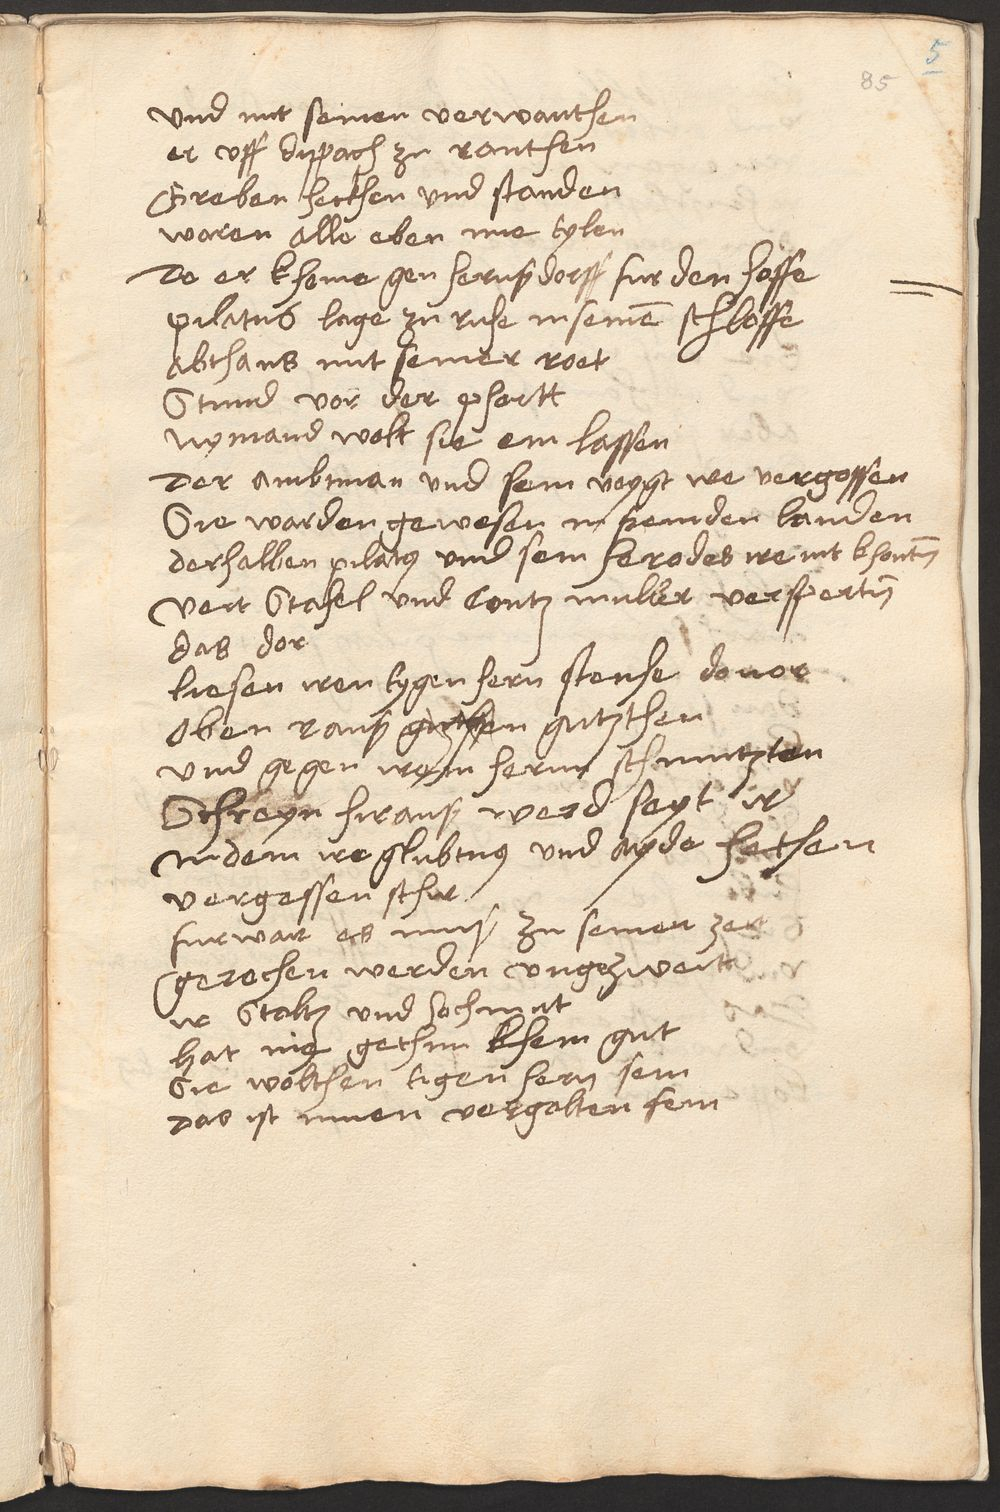 5
85
vnd mit seinen verwanthen
er vff dippach zu ranthen
Greben heckhen vnd standen
waren alle eben nne eylen
Do er kheme gen herrnßdorff fur den hoffe
pilatus lage zu ruhe in seinem schloffe
Abthans mit seiner rott
Stund vor der phortt
Nymand wolt sie ein lassen
Der ambtman vnd sein voygt we vergossen
Sie warden gewesen in fremden landen
derhalben pilatus vnd sein herodes ire nit khontten
veit Stahel vnd Contz muller versperten
das dor
liesen iren eygen hern stenhe dovor
Oben rauß gutzthen
vnd gegen irem hern schmutzten
Schreyn hirauß werd seyt ir
In dem ire glubtnus vnd ayde hethen
vergessen schir
furwar es muß zu seiner zeit
gerochen werden vngezweit
ir Stoltz vnd hochmut
hat nie gethun khein gut
Sie wolthen eigen hern sein
das ist innen vergolten fein